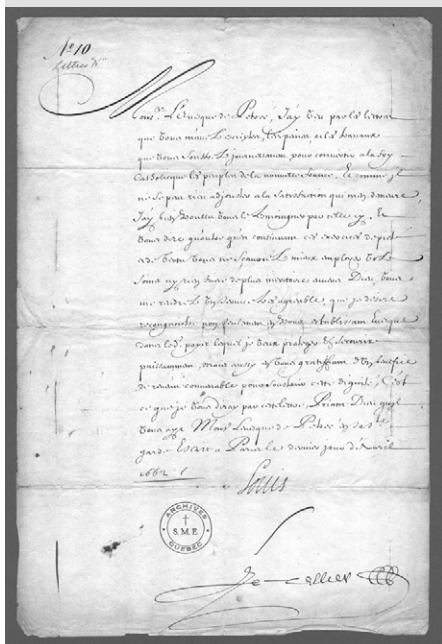 N.° 10
Mons.r L'Evesque de Petrée, J'ay veu par les lettres
que vous m'avez escriptes, les peines, et les travaux
que vous souffrez journellement pour convertir a la foy
Catholicque les peuples de la nouvelle france, Et comme jl
ne se peut rien adjouster a la satisfaction qui m'en demeure,
J'ay bien voulu vous le tesmoigner par celle cy, Et
vous dire qu'outre qu'en continuant ces exercices de pieté
et de vertu vous ne sçauriez mieux employer vos
soins ny rien faire de plus meritoire envers Dieu, vous
me rendrez un service si agreable, que je desire
recongnoistre non seulement en vous establissant Evesque
dans led. païs lequel je veux proteger Et secourir
puissamment, mais aussy en vous gratiffiant d'un
de revenu convenable pour soustenir cette dignité; C'est
ce que je vous diray par cette lettre Priant Dieu qu'il
vous ayt Mons.r L'evesque de Petrée en sa s.te
garde Escrit a Paris le dernier jour d'Avril
1662
Louis
Le Tellier
ARCHIVES
S.M.E.
QUEBEC